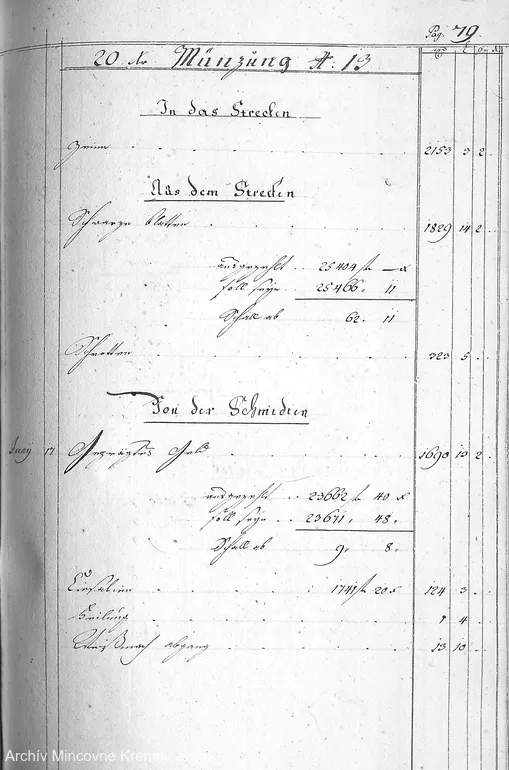 Pag. 79.
20 der Münzung N: 13
In das Strecken
Zeine 2153 3 2
Aus dem Strecken
Schwarze blatten 1829 14 2
ausgezahlt 25404 f — x
soll seyn 25466. 11
Schall ab 62. 11
Schrotten 323 5
Von der Schmidten
Juny 17 Geprägtes Geld 1690 13 2
ausgezahlt 23662 f 40 x
soll seyn 23671. 48.
Schall ab 9. 8.
Cisalien 1741 f 20 x 124 3
Heilung 1 4
Weißmach abgang 13 10
Archív Mincovne Kremnica